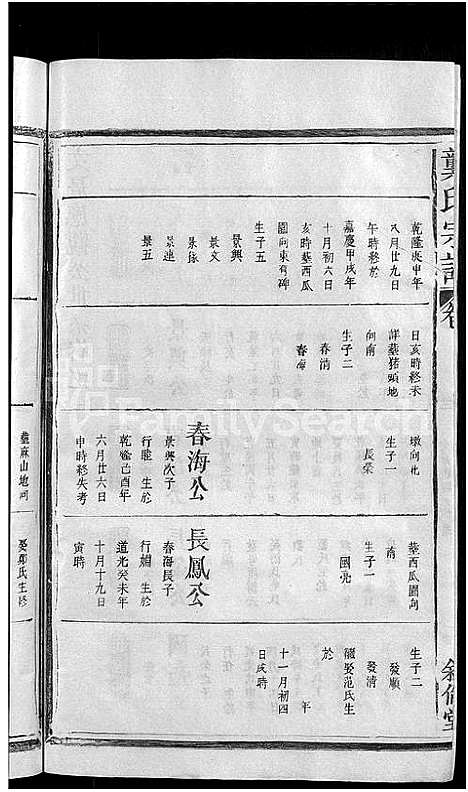 龔氏宗譜
卷
敘倫堂
乾隆庚申年
八月廿九日
午時終於
嘉慶甲戌年
十月初六日
亥時墓西瓜
園向東有碑
生子五
景興
景文
景依
景連
景五
日亥時終未
詳墓猪頭地
向南
生子二
春清
春海
墩向北
生子一
長榮
春海公
景興次子
行 生於
乾隆己酉年
六月廿六日
申時終失考
墓西瓜園向
南
生子一
國亮
長鳳公
春海長子
行 生於
道光癸未年
十月十九日
寅時
生子二
發順
發清
繼娶范氏生
於 年
十一月初四
日戌時
麻山地
娶鄭氏生於
FamilySearch